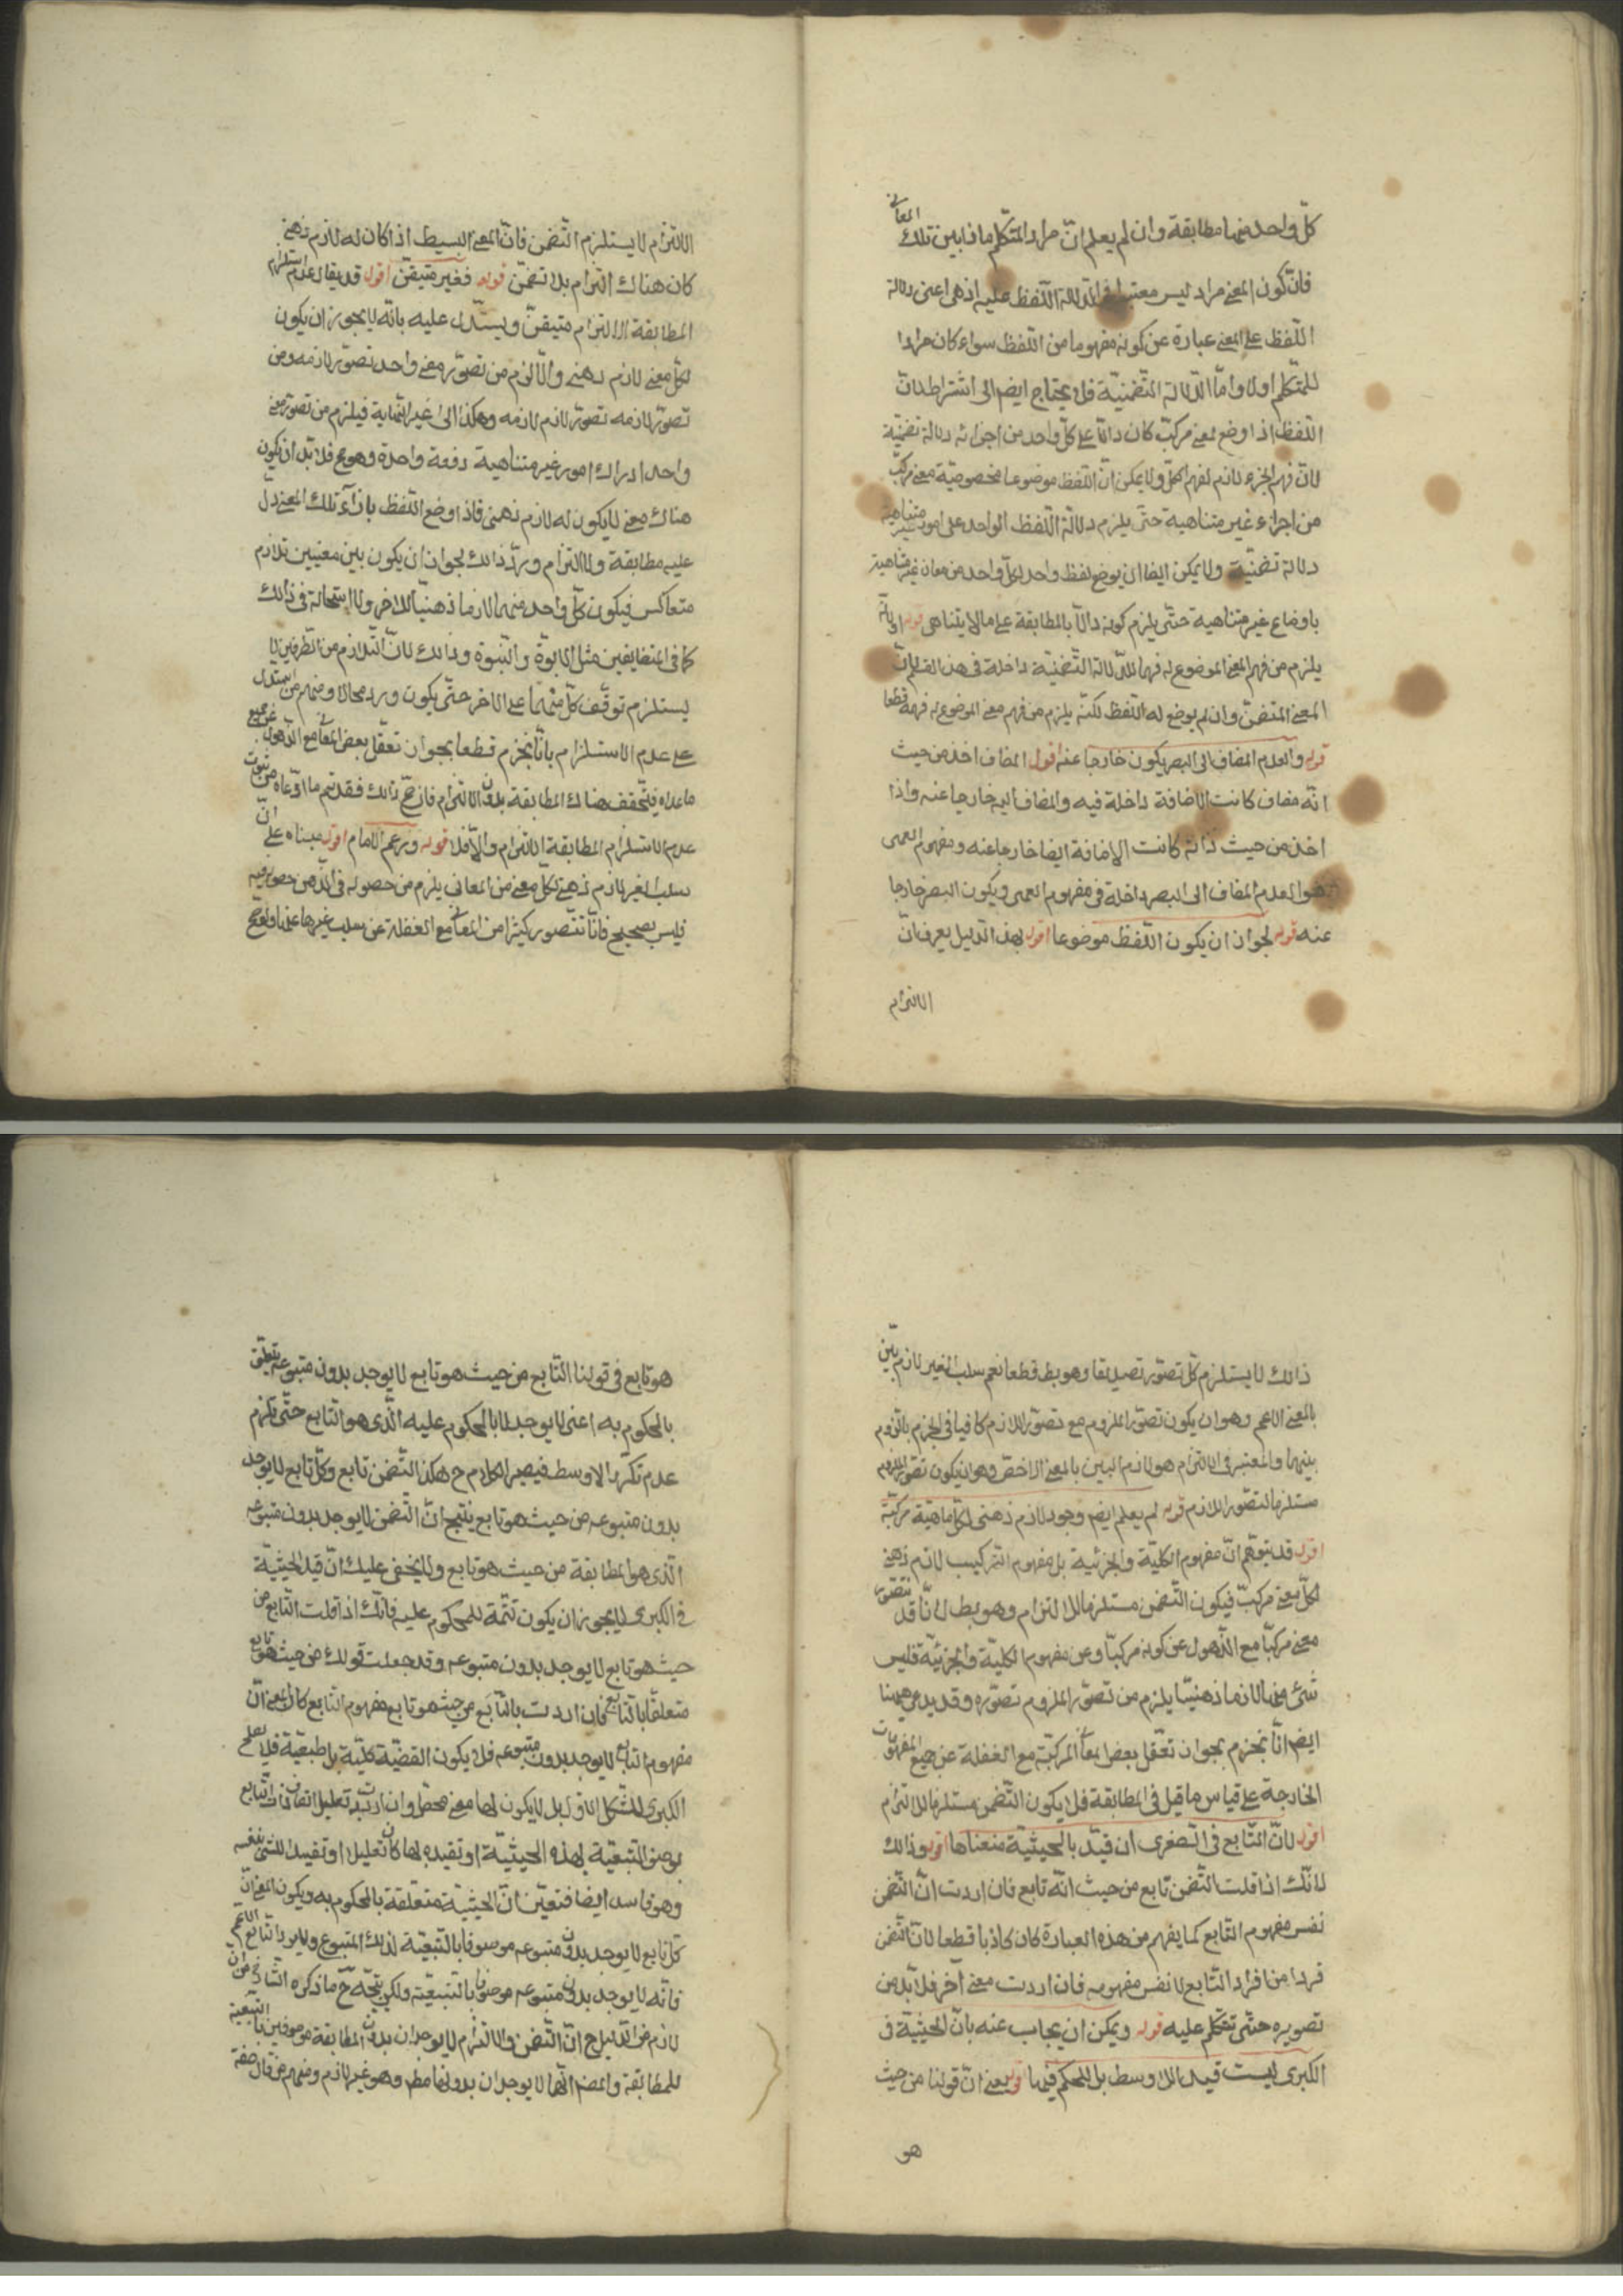 كلّ واحد منهما مطابقة وان لم يعلم انّ مراد المتكلم ماذا بين تلك المعانى
فانّ كون المعنى مراد ليس معتبرا فى دلالة اللّفظ عليه اذ هى اعنى دلالة
اللّفظ على المعنى عبارة عن كونه مفهوما من اللّفظ سواء كان مرادا
للمتكلم اولا وامّا الدّلالة التّضمنيّة فلا يحتاج ايضم الى اشتراط لانّ
اللّفظ اذا وضع لمعنى مركبّ كان دالّا على كلّ واحد من اجزائه دلالة تضمنيّة
لانّ فهم الجزء لازم لفهم الكلّ ولا يمكن انّ اللّفظ موضوعا بخصوصيّة معنى مركبّ
من اجزاء غير متناهية حتّى يلزم دلالة اللّفظ الواحد على امور غير متناهية
دلالة تضمنيّة ولا يمكن ايضا ان يوضع لفظ واحد لكلّ واحد من معان غير متناهية
باوضاع غير متناهية حتّى يلزم كونه دالّا بالمطابقة على ما لا يتناهى قوله
يلزم من فهم المعنى الموضوع له فهم الدّلالة التّضمنيّة داخلة فى هذا القسم لانّ
المعنى المتضمّن وان لم يوضع له اللّفظ لكنّه يلزم من فهم معنى الموضوع له فهمه قطعا
قوله والعدم المضاف الى البصر يكون خارجا عنه اقول المضاف اخذ من حيث
انّه مضاف كانت الاضافة داخلة فيه والمضاف اليه خارجا عنه واذا
اخذ من حيث ذاته كانت الاضافة ايضا خارجا عنه ومفهوم العمى
هو العدم المضاف الى البصر داخلة فى مفهوم العمى ويكون البصر خارجا
عنه قوله لجواز ان يكون اللّفظ موضوعا اقول بهذا الدّليل يعرف انّ
الالتزام
الالتزام لا يستلزم التّضمن فانّ المعنى البسيط اذا كان له لازم ذهنى
كان هناك التزام بلا تضمّن قوله فغير متيقّن اقول قد يقال عدم استلزام
المطابقة الالتزام متيقّن ويستدلّ عليه بانّه لا يجوز ان يكون
لكلّ معنى لازم ذهنى والّا لزم من تصوّر معنى واحد تصوّر لازمه ومن
تصوّر لازمه تصوّر لازم لازمه وهكذا الى غير النّهاية فيلزم من تصوّر معنى
واحد ادراك امور غير متناهية دفعة واحدة وهو مح فلا بدّ ان يكون
هناك معنى لا يكون له لازم ذهنى فاذا وضع اللّفظ بازآء تلك المعنى دلّ
عليه مطابقة ولا التزام وردّ ذالك لجواز ان يكون بين معنيين تلازم
متعاكس فيكون كلّ واحد منهما لازما ذهنيّا للاخر ولا استحالة فى ذالك
كما فى المتضايفين مثل الابوّة والبنوّة وذالك لانّ التّلازم من الطّرفين لا
يستلزم توقّف كلّ منهما على الاخر حتّى يكون دورا محالا ومنهم من استدلّ
على عدم الاستلزام بانّا نجزم قطعا بجواز تعقّل بعض المعانى مع الذّهول عن جميع
ما عداه فيتحقّق هناك المطابقة بدون الالتزام فان صحّ ذالك فقد تمّ ما ادّعاه من ثبوت
عدم استلزام المطابقة الالتزام والّا فلا قوله وزعم الامام اقول مبناه على انّ
سلب الغير لازم ذهنى لكلّ معنى من المعانى يلزم من حصوله فى الذّهن حصوله فيه
فليس بصحيح فانّا نتصور كثيرا من المعانى مع الغفلة عن سلب غيرها عنها ولو صح
ذالك لا يستلزم كلّ تصوّر تصديقا وهو بط قطعا نعم سلب الغير لازم بيّن
بالمعنى الاعم وهو ان يكون تصوّر الملزوم مع تصوّر اللازم كافيا فى الجزم باللزوم
بينهما والمعتبر فى الالتزام هو لازم البيّن بالمعنى الاخصّ وهو ان يكون تصوّر الملزوم
مستلزما لتصوّر اللازم قوله لم يعلم ايضم وجود لازم ذهنى لكلّ ماهية مركبّة
اقول قد يتوهّم انّ مفهوم الكليّة والجزئية بل مفهوم التّركيب لازم ذهنى
لكلّ معنى مركبّ فيكون التّضمن مستلزما للالتزام وهو بط لانّا قد نتصوّر
معنى مركبّا مع الذّهول عن كونه مركبّا وعن مفهوم الكليّة والجزئيّة فليس
شئ منها لازما ذهنيّا يلزم من تصوّر الملزوم تصوّره وقد يدعى ههنا
ايضم انّا نجزم بجواز تعقّل بعض المعانى المركبّة مع الغفلة عن جميع المفهومات
الخارجة على قياس ما قيل فى المطابقة فلا يكون التّضمن مستلزما للالتزام
اقول لانّ التّابع فى الصّغرى ان قيّد بالحيثيّة منعناها اقول وذالك
لانّك اذا قلت التّضمن تابع من حيث انّه تابع فان اردت انّ التّضمن
نفس مفهوم التّابع كما يفهم من هذه العبارة كان كاذبا قطعا لانّ التّضمن
فردا من افراد التّابع لا نفس مفهومه فان اردت معنى آخر فلا بدّ من
تصويره حتّى نتكلّم عليه قوله ويمكن ان يجاب عنه بانّ الحيثيّة فى
الكبرى ليست قيدا للاوسط بل للحكم فيها اقول يعنى انّ قولنا من حيث
هو
هو تابع فى قولنا التّابع من حيث هو تابع لا يوجد بدون متبوعه يتعلّق
بالمحكوم به اعنى لا يوجد لا بالمحكوم عليه الّذى هو التّابع حتّى يلزم
عدم تكرّر الاوسط فيصير الكلام ح هكذا التّضمن تابع وكلّ تابع لا يوجد
بدون متبوعه من حيث هو تابع ينتج انّ التّضمن لا يوجد بدون متبوعه
الّذى هو المطابقة من حيث هو تابع ولا يخفى عليك انّ قيد الحيثيّة
فى الكبرى لا يجوز ان يكون تتمّة للمحكوم عليه فانّك اذا قلت التّابع من
حيث هو تابع لا يوجد بدون متبوعه وقد جعلت قولك من حيث هو تابع
متعلّقا بالتابع فان اردت بالتّابع من حيث هو تابع مفهوم التابع كان المعنى انّ
مفهوم التابع لا يوجد بدون متبوعه فلا يكون القضيّة كليّة بل طبيعيّة فلا يصلح
الكبرى للشكل الاوّل بل لا يكون لها معنى محصّل وان اردت به تعليل اتصاف ذات التّابع
بوصف التبعيّة لهذه الحيثيّة او تقيده لها كان تعليلا او تقييدا للشئ بنفسه
وهو فاسد ايضا فتعيّن انّ الحيثيّة متعلّقة بالمحكوم به ويكون المعنى انّ
كلّ تابع لا يوجد بدون متبوعه موصوفا بالتّبعيّة لذلك المتبوع ولا يرد التّابع الاعم
فانّه لا يوجد بدون متبوعه موصوفا بالتّبعيّة ولكن يتّجه ح ما ذكره الشّارح من انّ
لازم من الدّليل ح انّ التّضمن والالتزام لا يوجدان بدون المطابقة موصوفين بالتّبعيّة
للمطابقة والمدّعى انّهما لا يوجدان بدونها مطم وهو غير لازم ومنهم من قال صفة